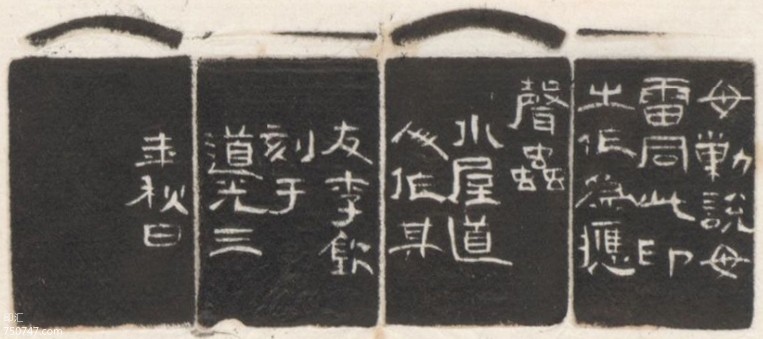 毋勦說毋
雷同此印
之作為應
聲蟲
水屋道
人作其
友李
刻于
道光三
年秋日
印汇
750747.com